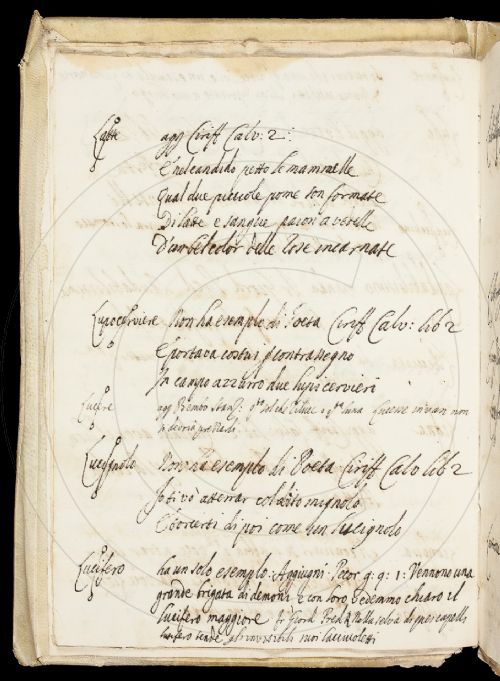 Latte agg Ciriff Calv: 2:
E nel candido petto le mammelle
Qual due picciole pome son formate
Di latte e sangue paion a vederle
D'un bel color delle rose incarnate
Lupocerviere Non ha esempio di Poeta Ciriff Calv: lib 2
E portava costui p contrassegno
In campo azzurro due lupicervieri
Lucere agg Bembo Stanz: luna lucere non
si dovria
Lucignolo Non ha esempio di Poeta Ciriff Calv lib 2
Io ti vò atterrar col dito mignolo
E torcerti di poi come un lucignolo
Lucifero ha un solo esempio. Aggiugni: Pecor g: 9: 1: Vennono una
grande brigata di demoni e con loro vedemmo chiaro il
Lucifero maggiore Nella selva di quei capelli
lucifero tende gl'invisibili suoi lacciuoletti